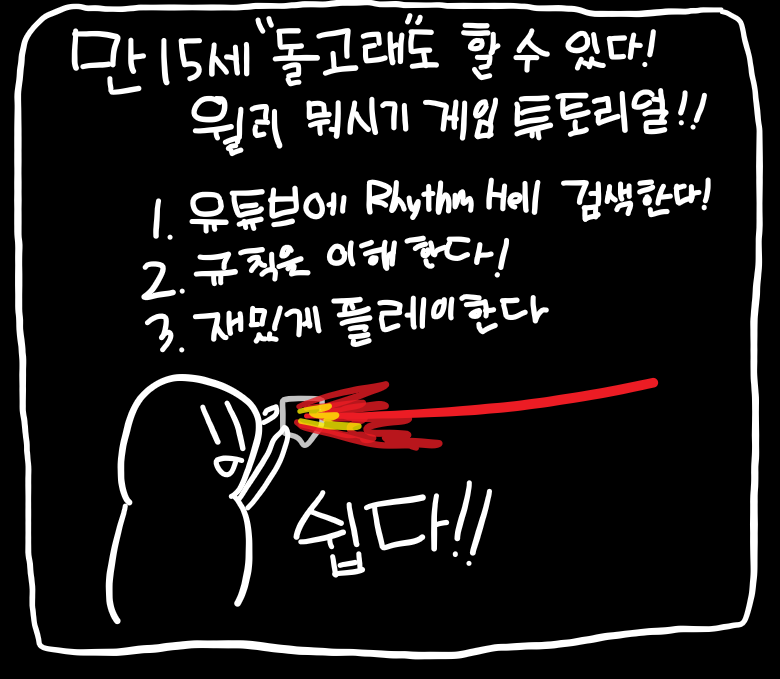 만 15세 "돌고래"도 할 수 있다!
윌리 뭐시기 게임 튜토리얼!!
1. 유튜브에 Rhythm Hell 검색한다!
2. 규칙을 이해한다!
3. 재밌게 플레이한다
쉽다!!